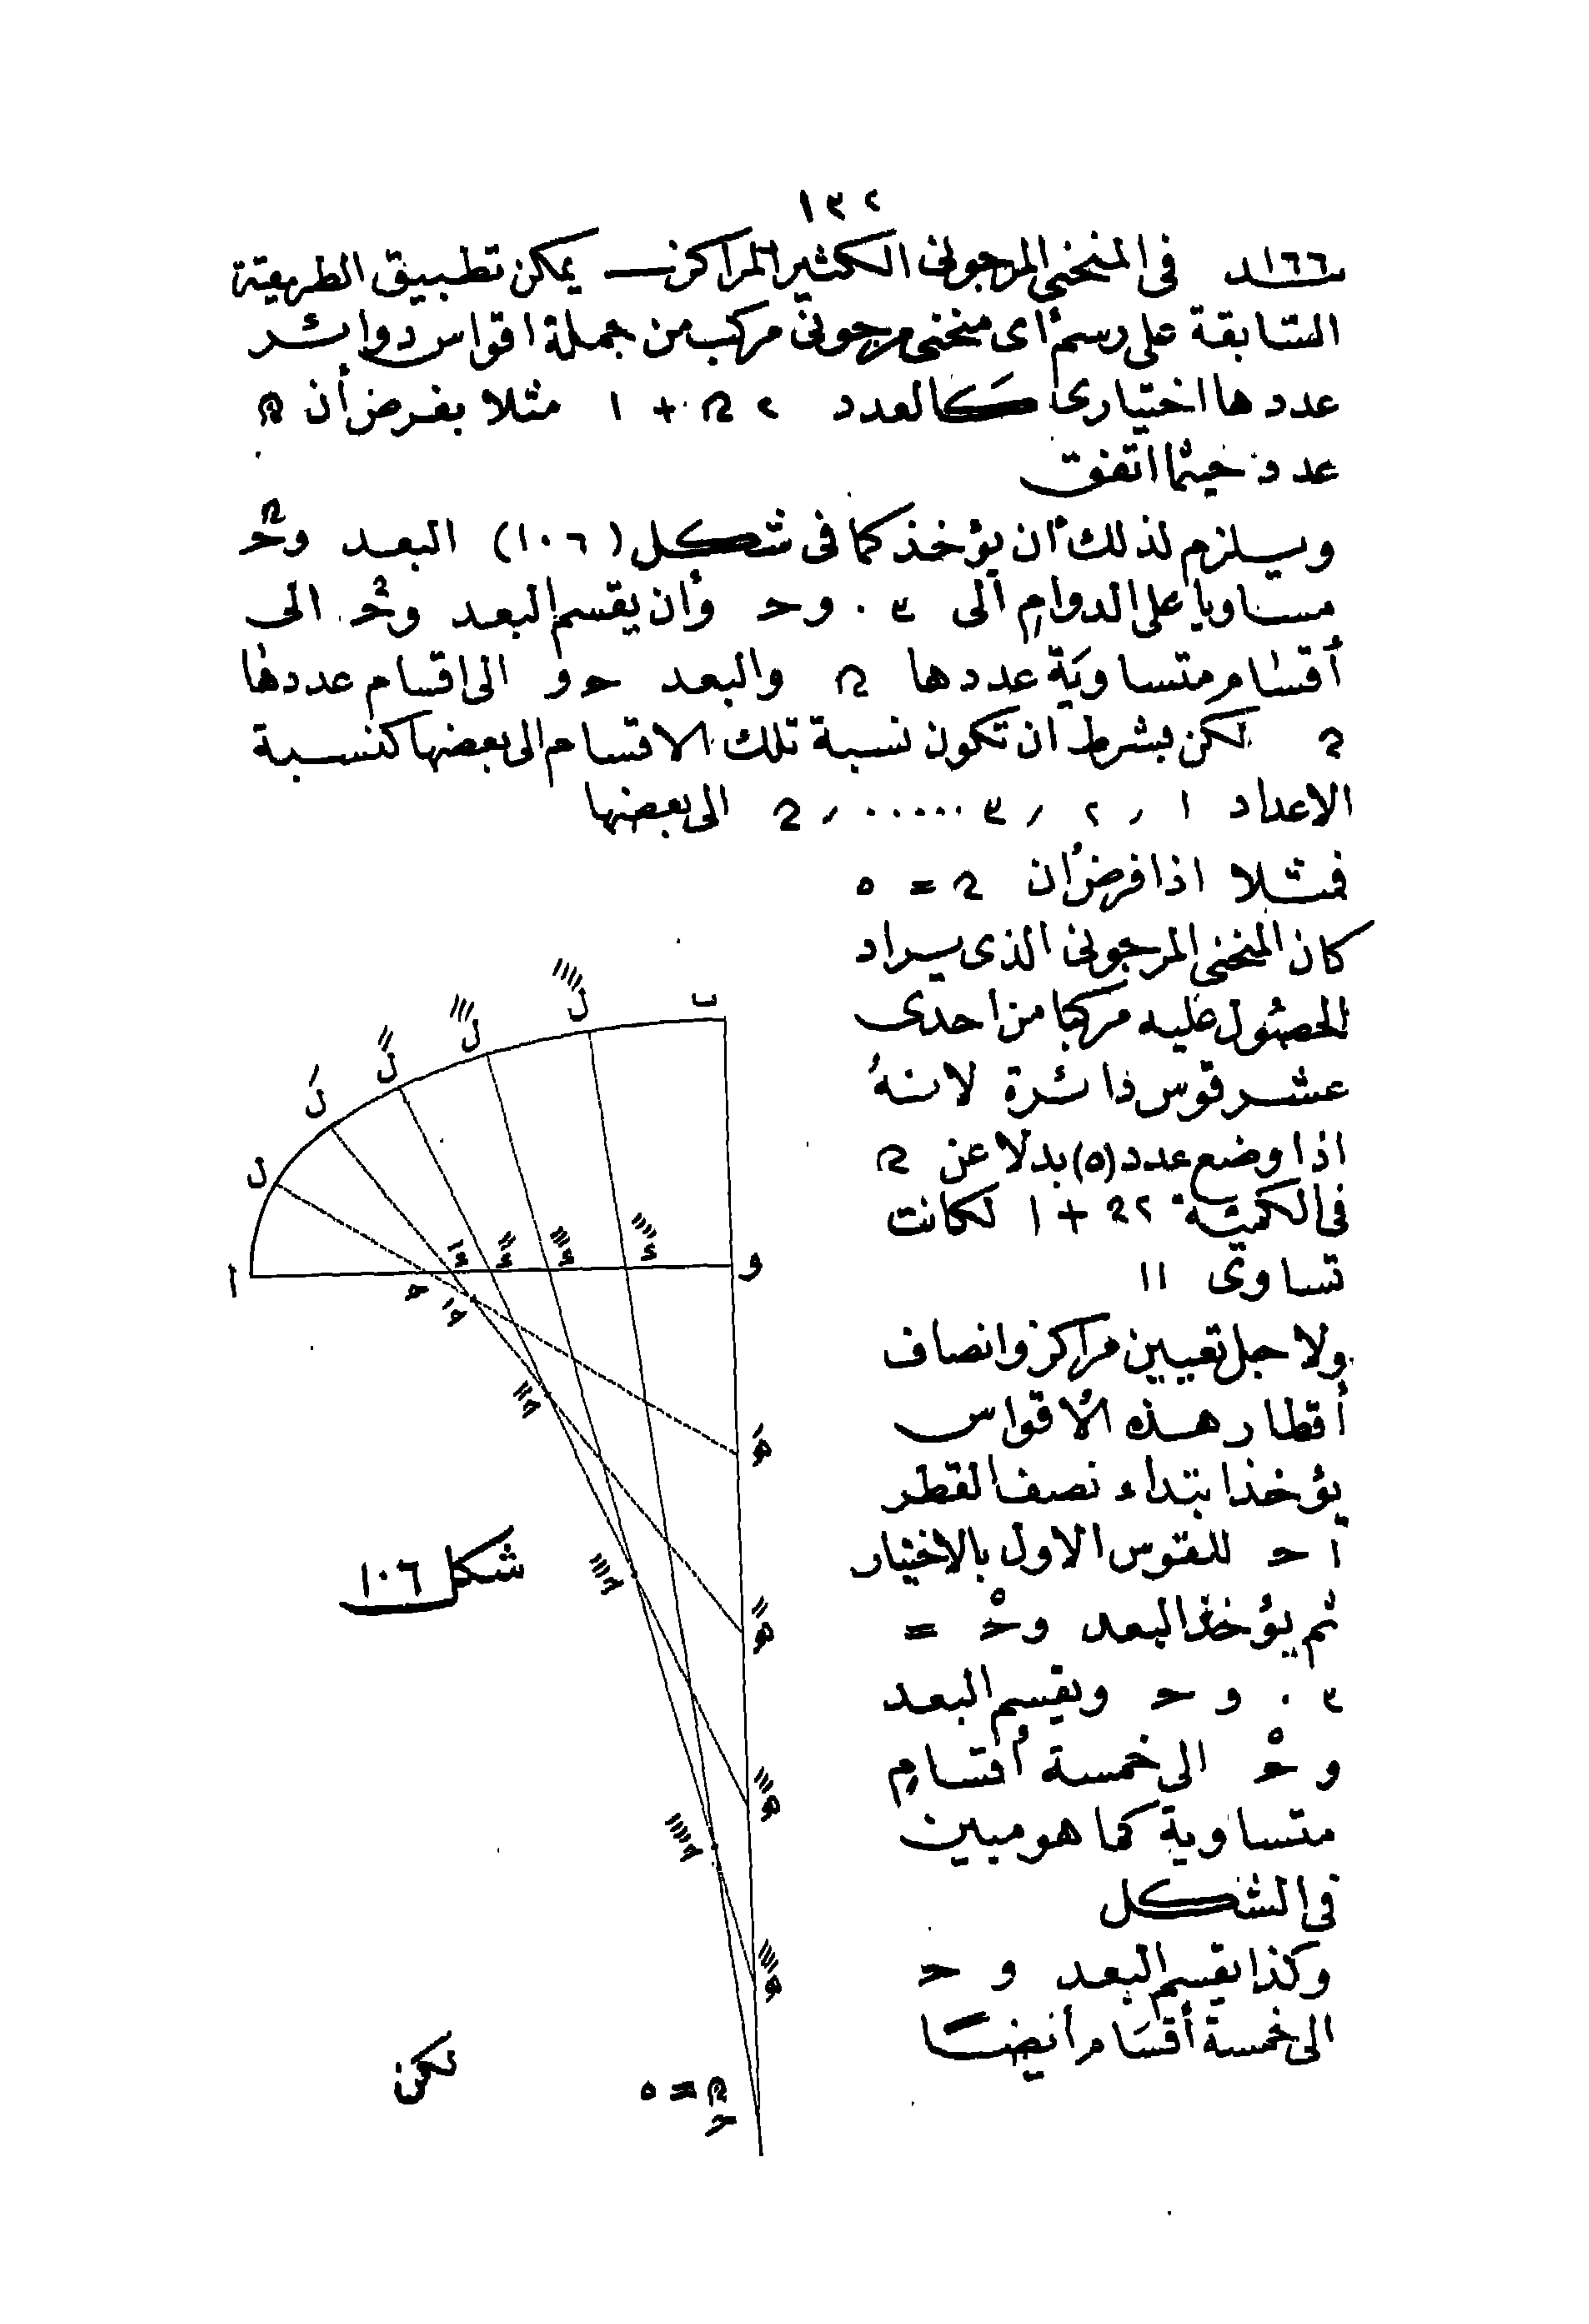 ١٣٢
١٦٦ـد فى المنحنى المرجونى الكثير المراكز — يمكن تطبيق الطريقة
السابقة على رسم أى منحنى مرجونى مركب من جملة اقواس دوائر
عددها اختيارى كالعدد ٢ ن + ١ مثلا بفرض أن ن
عدد حيثما اتفق
ويلزم لذلك أن يؤخذ كما فى شكل (١٠٦) البعد وحـ
مساويا على الدوام الى ٣ . وحـ وأن يقسم البعد وحـ الى
أقسام متساوية عددها ن والبعد حـو الى اقسام عددها
ن لكن بشرط ان تكون نسبة تلك الاقسام الى بعضها كنسبة
الاعداد ١ , ٢ , ٣ ..... , ن الى بعضها
فمثلا اذا فرض أن ن = ٥
كان المنحنى المرجونى الذى يراد
الحصول عليه مركبا من احدى
عشر قوس دائرة لانه
اذا وضع عدد (٥) بدلا عن ن
فى الكمية ٢ن + ١ لكانت
تساوى ١١
ولاجل تعيين مراكز وانصاف
أقطار هذه الأقواس
يؤخذ ابتداء نصف القطر
ا حـ للقوس الاول بالاختيار
ثم يؤخذ البعد وحـْ =
٣ . و حـ ويقسم البعد
و حـْ الى خمسة أقسام
متساوية كما هو مبين
فى الشكل
وكذا يقسم البعد و حـ
الى خمسة أقسام أيضا
ب
ل
ا
و
شكل ١٠٦
ن = ٥
حـ
لكن